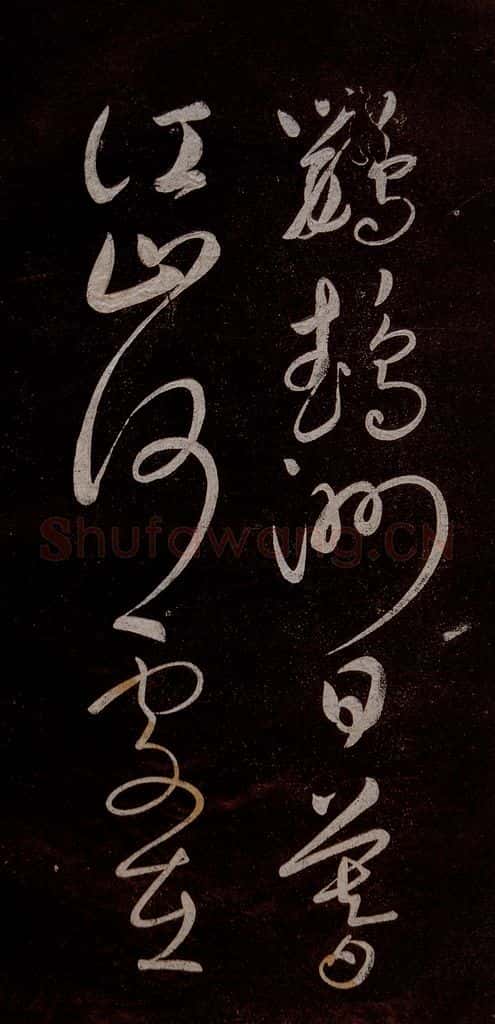 鸚鵡洲日暮
江山何處在
Shufawang.CN